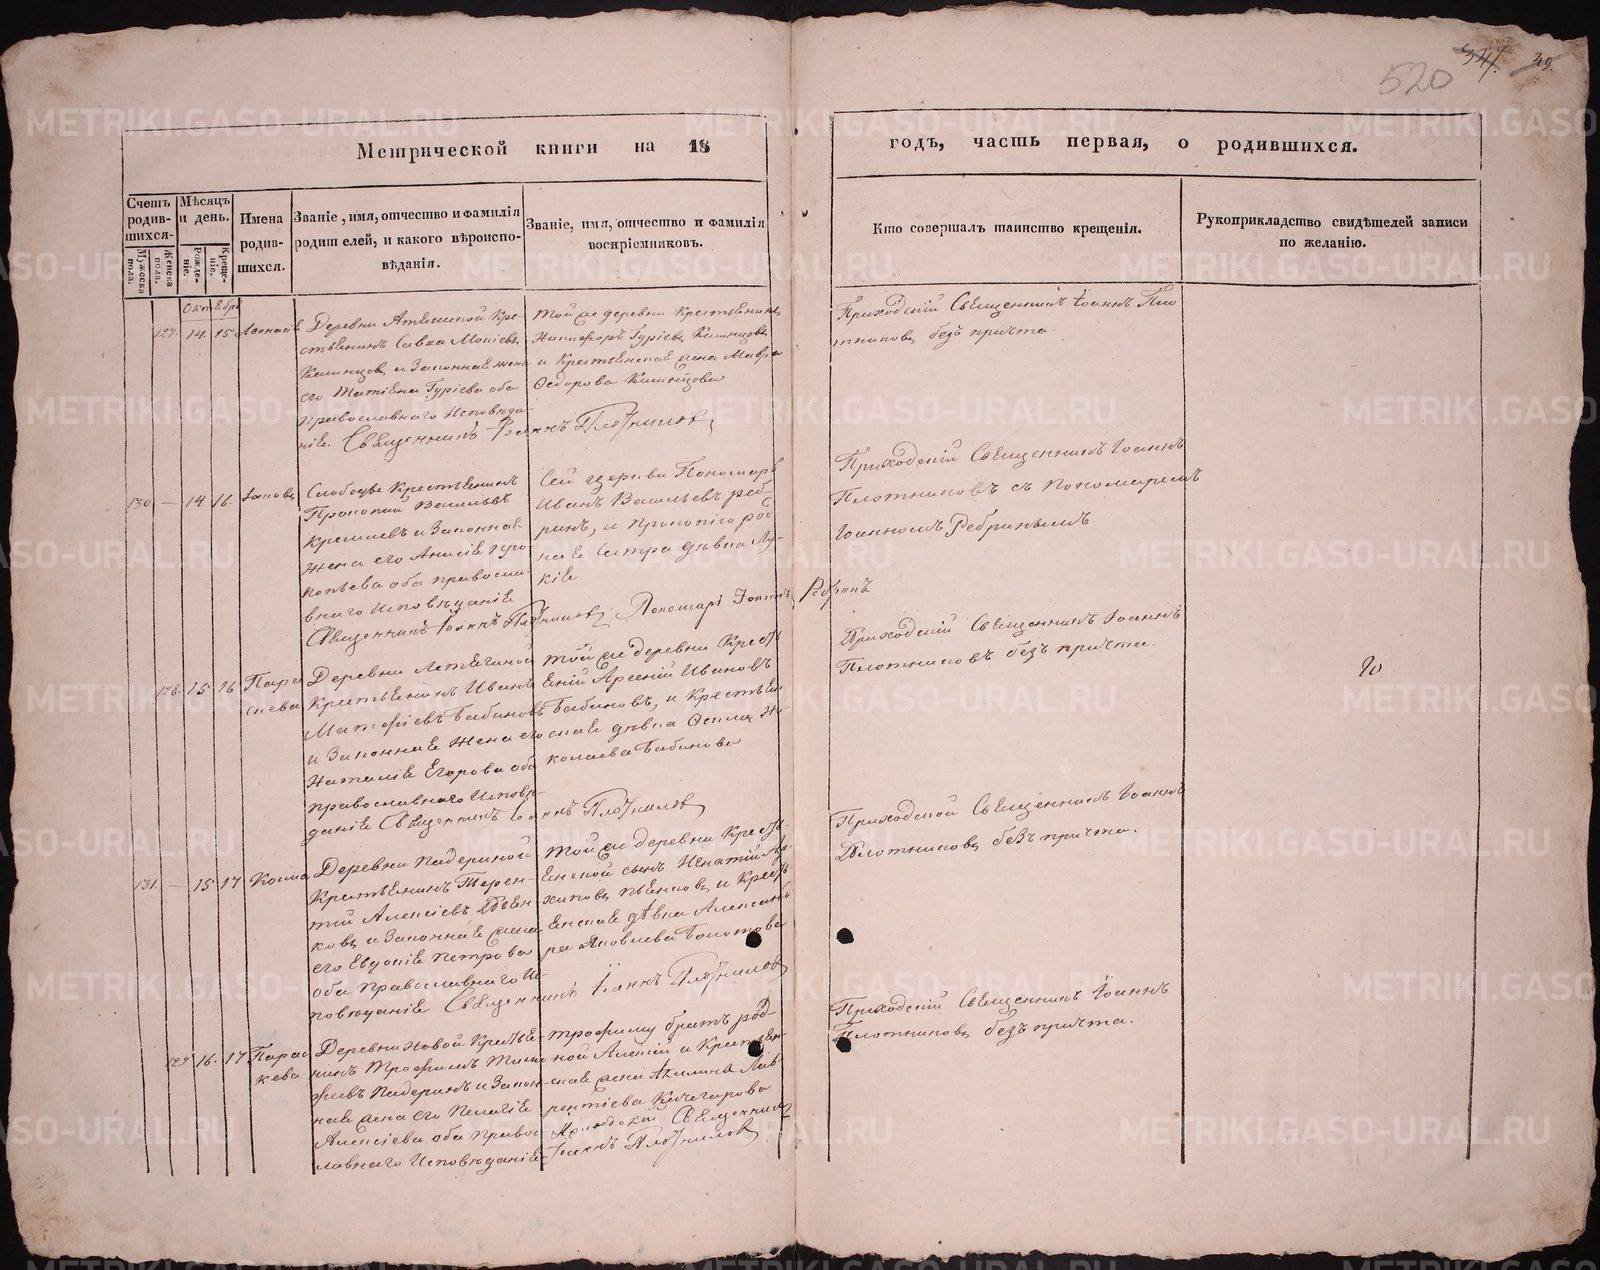 520
39
Метрической книги на 18
годъ, часть первая, о родившихся.
Счетъ родив-шихся.
Мужеска пола.
Женска пола.
Мѣсяцъ и день.
Рожде-ніе.
Креще-ніе.
Имена родив-шихся.
Званіе, имя, отчество и фамилія родителей, и какого вѣроиспо-вѣданія.
Званіе, имя, отчество и фамилія воспріемниковъ.
Кто совершалъ таинство крещенія.
Рукоприкладство свидѣтелей записи по желанію.
Октебря
127. 14. 15
Деревни
и Законнае жена
его Татіена Гуріева оба
православнаго Исповѣда-
ніе. Священникъ Іоаннъ Плотниковъ
Той же деревни Крестьенинъ
Никифоръ Гуріевъ
и Крестьенская жена Мавра
Ѳедорова
Приходскій Священникъ Іоаннъ Пло
тниковъ безъ причта.
130. — 14. 16. Іаковъ
Слободы Крестьенинъ
Прокопій Васильевъ
и Законнае
жена его Анисіе Про-
копьева оба правосла-
внаго Исповѣданіе
Священникъ Іоаннъ Плотниковъ Пономарь Іоаннъ Ребринъ
Сей церкви Пономарь
Иванъ Васильевъ Реб-
ринъ, и Прокопіго род-
нае Сестра дѣвка Лу-
кіе
Приходскій Священникъ Іоаннъ
Плотниковъ съ Пономаремъ
Іоанномъ Ребринымъ.
128. 15. 16 Параскева
Деревни
Крестьенинъ Иванъ
Матфіевъ Бабиновъ
и Законнае Жена его
Наталіе Егорова оба
православнаго Исповѣ-
даніе Священникъ Іоаннъ Плотниковъ
Той же деревни Крестъ
Еній Арсеній Ивановъ
Бабиновъ, и Крестьен
скае дѣвка Ни-
колаева Бабинова
Приходскій Священникъ Іоаннъ
Плотниковъ безъ причта.
20
131. — 15 17 Косма
Деревни Падериной
Крестьенинъ Терен-
тій Алексіевъ Пьен-
ковъ и Законнае жена
его Евдокіе Петрова
оба Православнаго Ис-
повѣданіе Священникъ Іоаннъ Плотниковъ
Той же деревни Крестъ-
Енской сынъ Игнатій
Пьенковъ и Крестъ
Енскае дѣвка Александ
ра Яковлева Болотова
Приходской Священникъ Іоаннъ
Плотниковъ безъ причта.
129 16. 17 Параскева
Деревни Новой Крестье-
нинъ Трофимъ Тимо
фіевъ Падеринъ и Закон-
нае жена его Пелагіе
Алексіева оба Право-
лавнаго Исповѣданіе
Трофиму братъ род-
ной Алексій и Крестьен-
скае жена Акилина Лав
рентіева Кочегарова
Приходской Священникъ
Іоаннъ Плотниковъ
Приходскій Священникъ Іоаннъ
Плотниковъ безъ причта.
METRIKI.GASO-URAL.RU